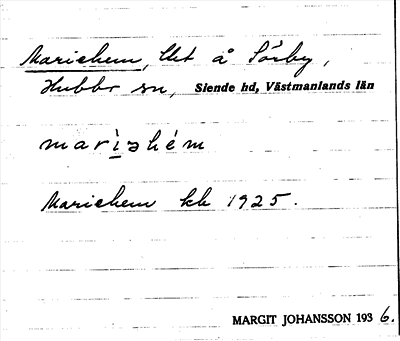 Mariehem, lht å Sörby,
Hubbo sn, Siende hd, Västmanlands län
marìəhém
Mariehem kb 1925.
MARGIT JOHANSSON 1936.